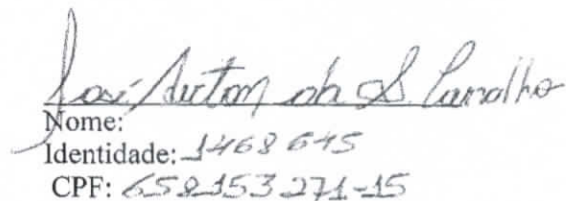 José Airton da S. Carvalho
Nome:
Identidade: 1468645
CPF: 658153271-15